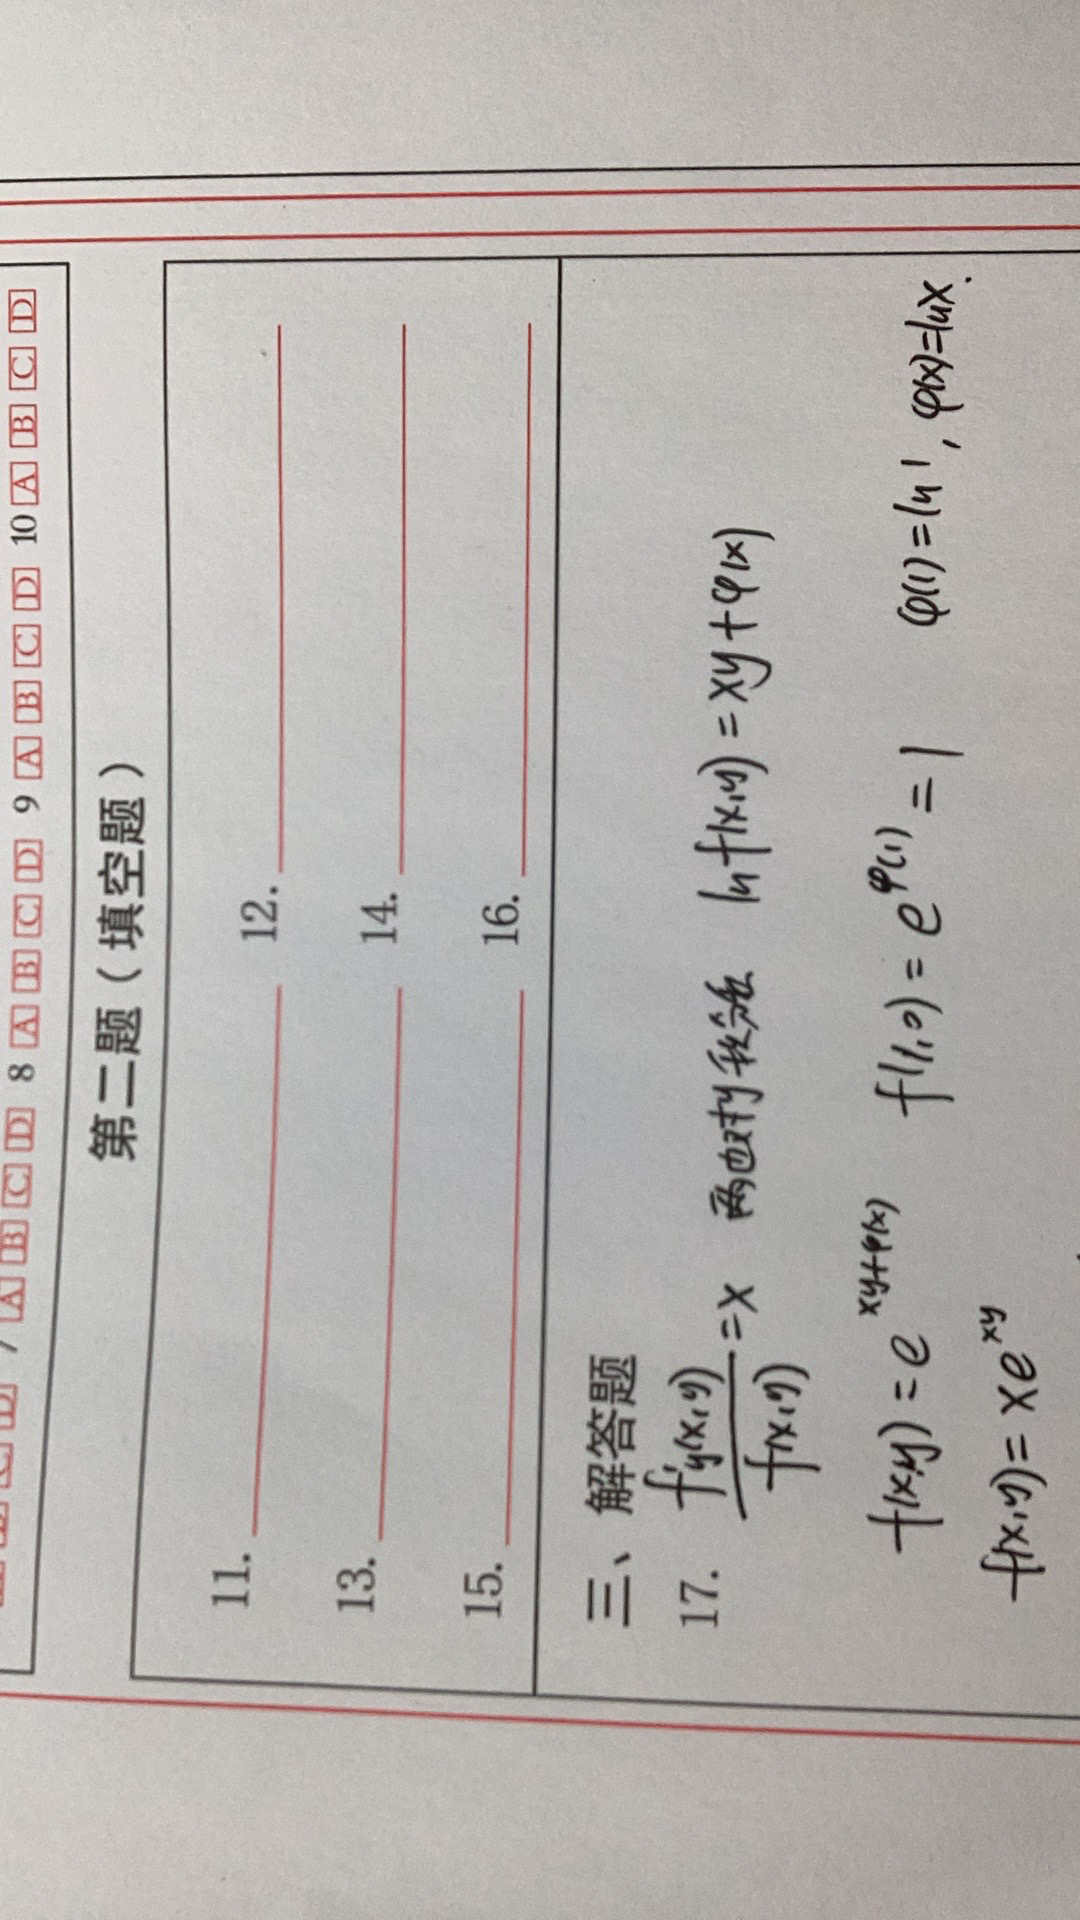 7 A B C D 8 A B C D 9 A B C D 10 A B C D
第二题（填空题）
11. 12.
13. 14.
15. 16.
三、解答题
17. f'y(x,y)/f(x,y) = x 两边对y积分 ln f(x,y) = xy + φ(x)
f(x,y) = e^{xy+φ(x)} f(1,0) = e^{φ(1)} = 1 φ(1) = ln 1 , φ(x) = ln x.
f(x,y) = x e^{xy}